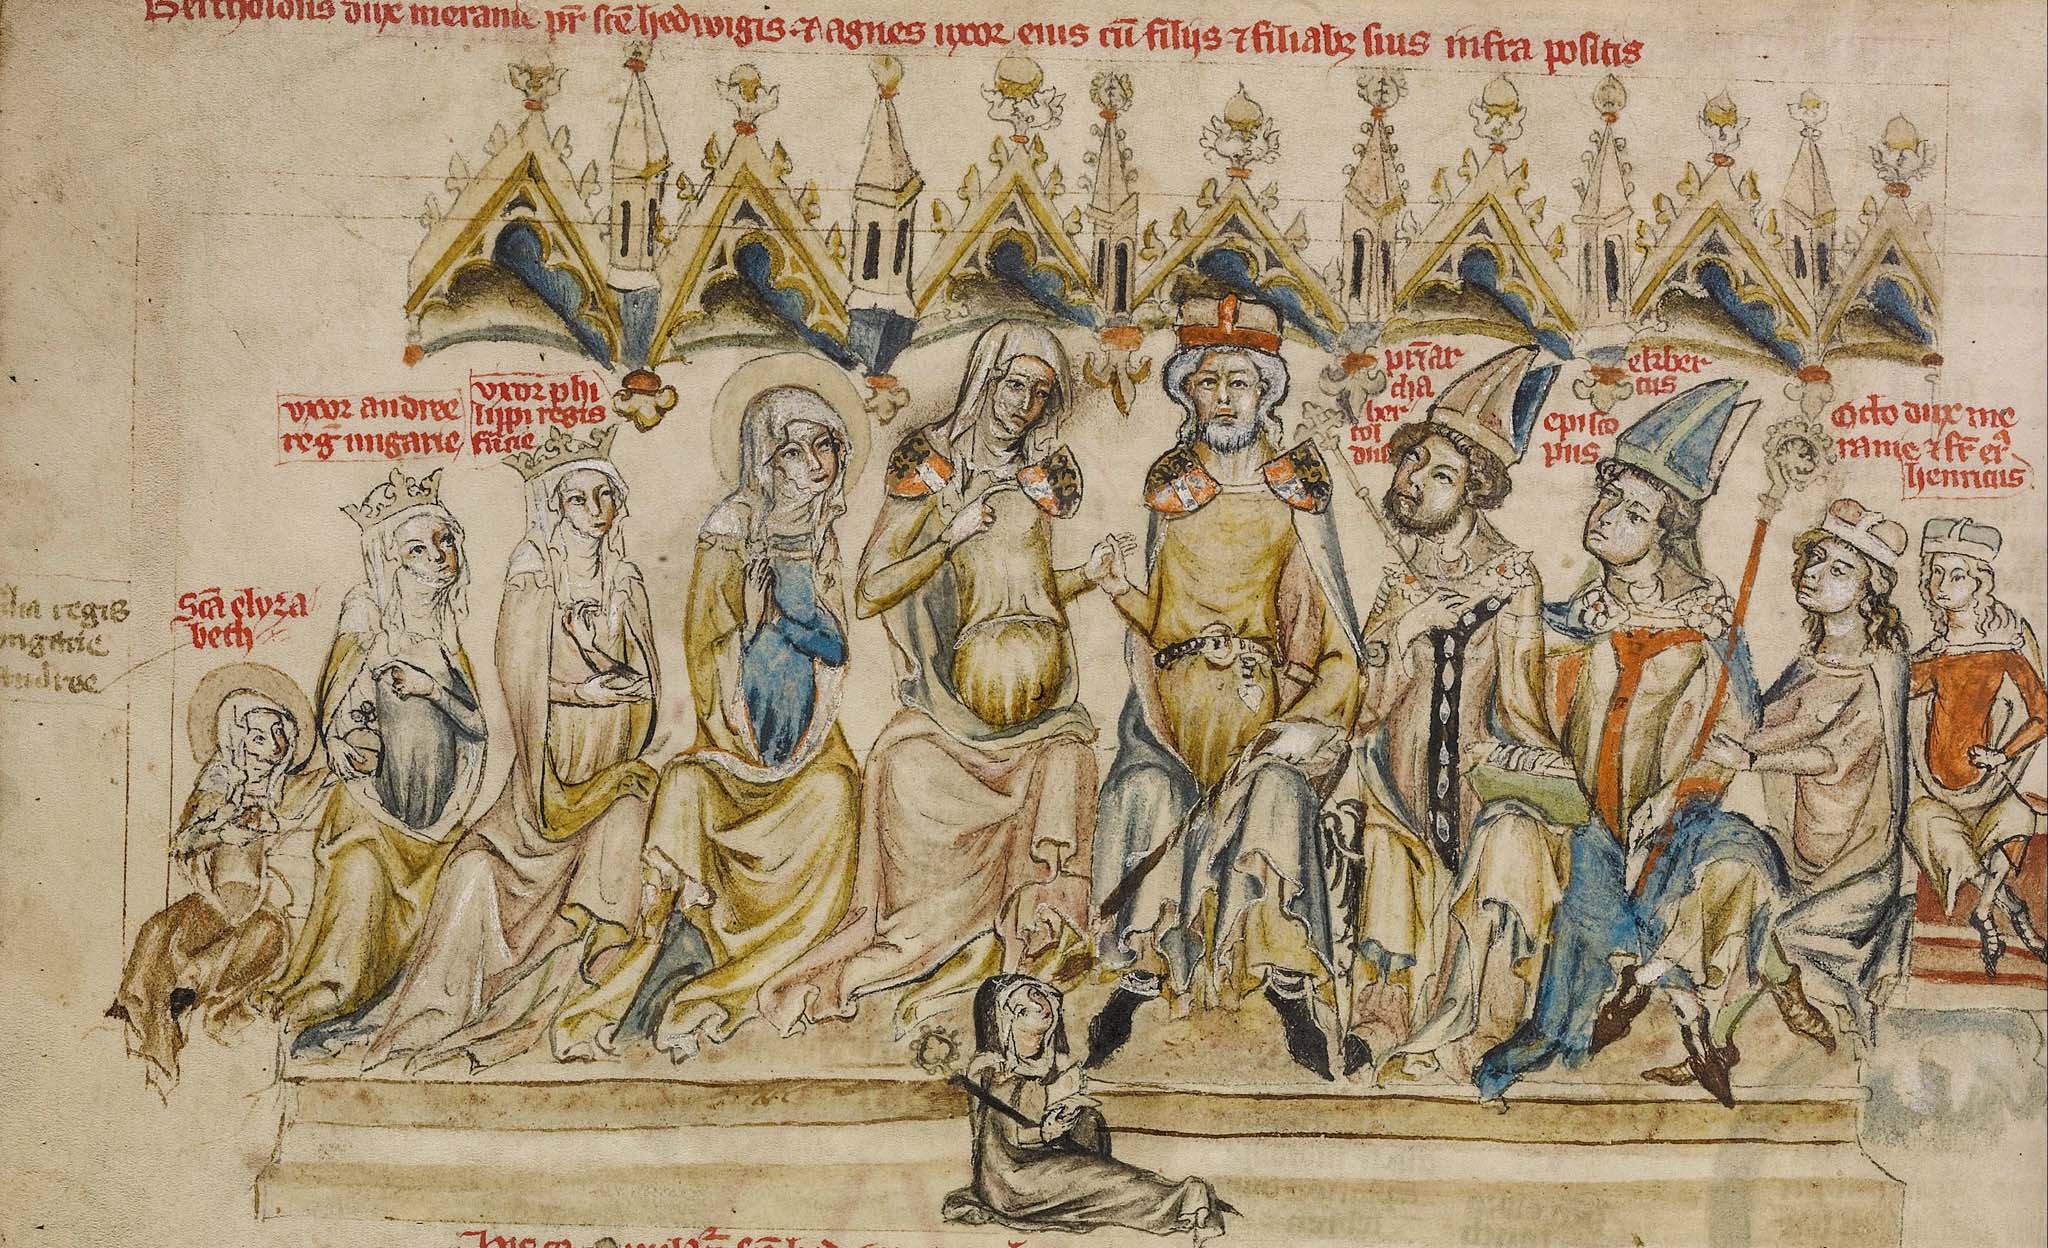 Bertholdus dux meranie pr̄ scē hedwigis ⁊ agnes uxor eius cū filiis ⁊ filiabꝫ suis infra positis
uxor andree
reg̅ ungarie
uxor phi
lippi regis
fr̄acie
pr̄iar
cha
ber
tol
dus
ekber
tus
episco
pus
Otto dux me
ranie ⁊ fr̄ eꝰ
henricus
Sc̄a elyza
beth
filia regis
ungarie
andree